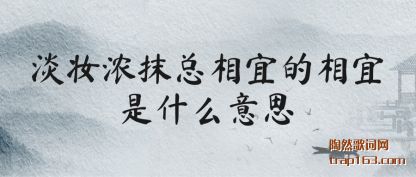 淡妆浓抹总相宜的相宜
是什么意思
陶然歌词网
trap163.com